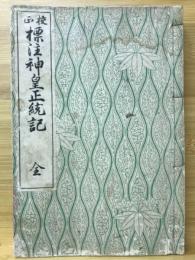 校正
標注神皇正統記 全